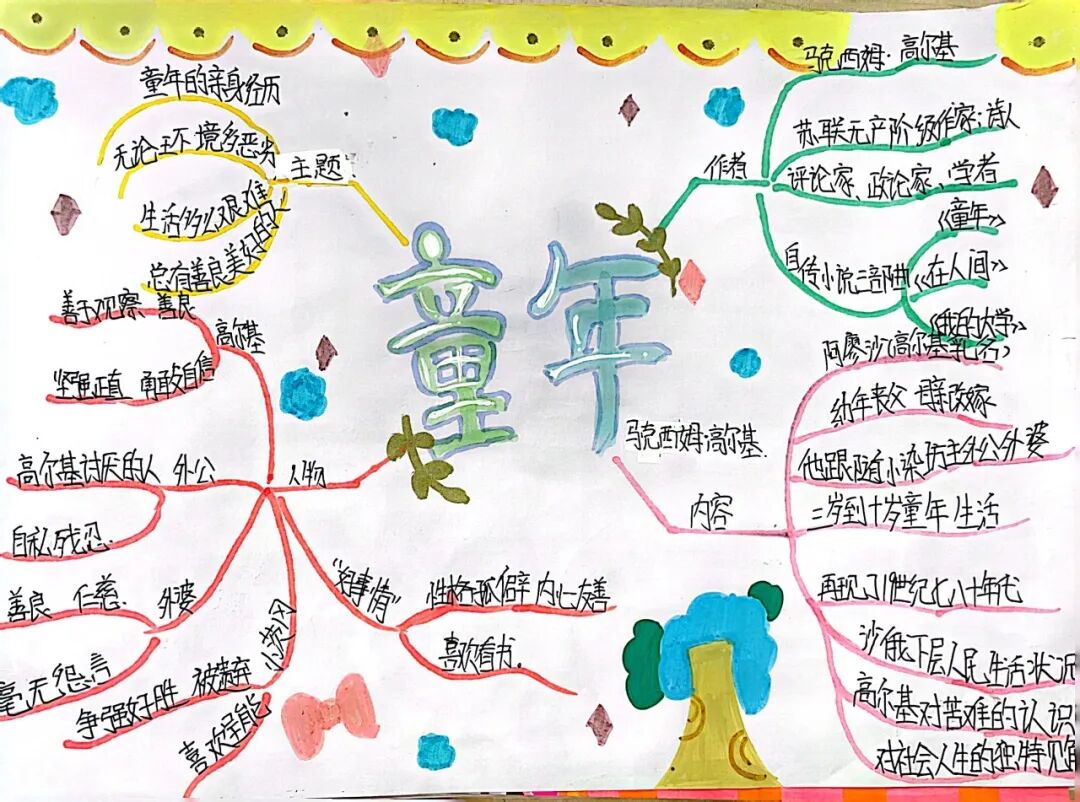 童年
马克西姆·高尔基
主题
童年的亲身经历
无论环境多恶劣
生活多么艰难
总有善良美好的人
作者
马克西姆·高尔基
苏联无产阶级作家、诗人
评论家、政论家、学者
自传小说三部曲
《童年》
《在人间》
《我的大学》
人物
高尔基
善于观察 善良
坚强正直 勇敢自信
高尔基讨厌的人 外公
自私残忍.
外婆
善良 仁慈.
毫无怨言
小茨冈
争强好胜 被遗弃
喜欢呈能
"好事情"
性格孤僻 内心友善
喜欢看书.
内容
阿廖沙(高尔基乳名)
幼年丧父 母亲改嫁
他跟随小染坊主外公外婆
三岁到十岁童年生活
再现了19世纪七八十年代
沙俄下层人民生活状况
高尔基对苦难的认识
对社会人生的独特见解